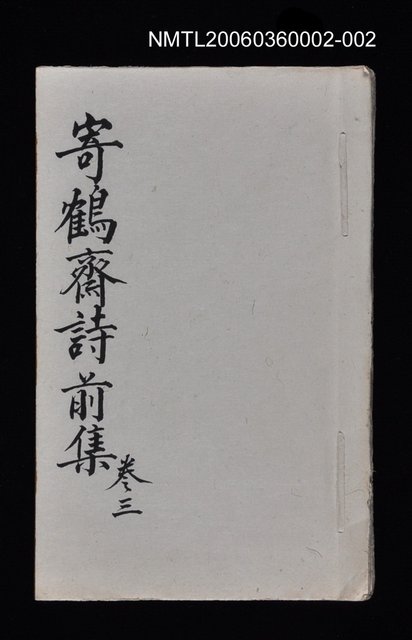 NMTL20060360002-002
寄鶴齋詩前集
卷三